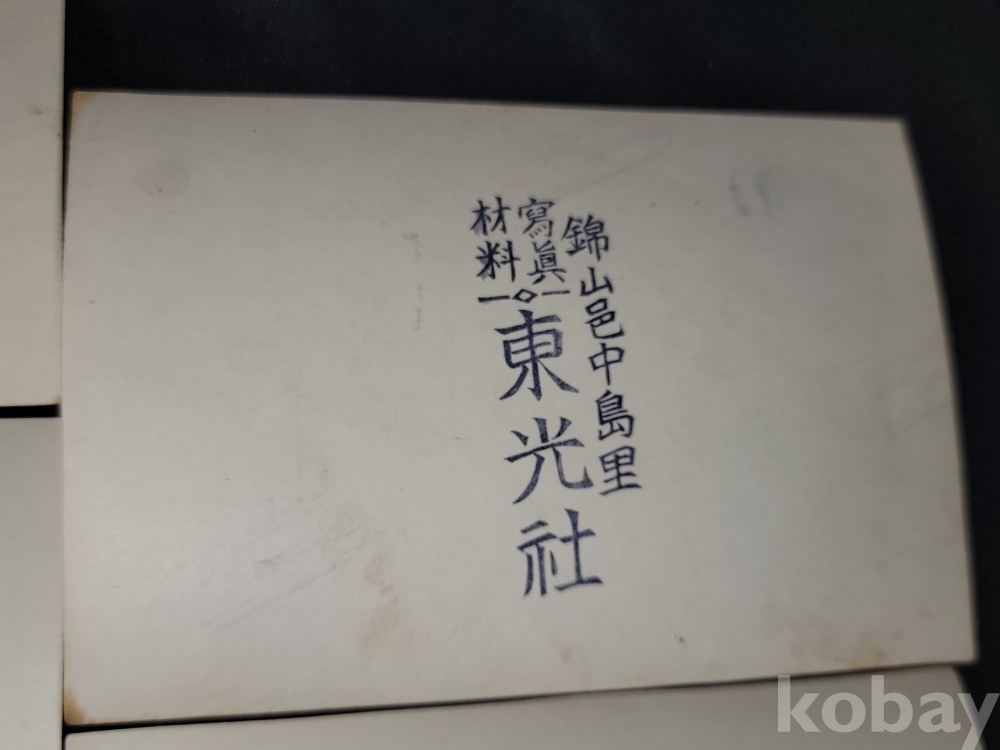 錦山邑中島里
寫眞
材料
東光社
kobay